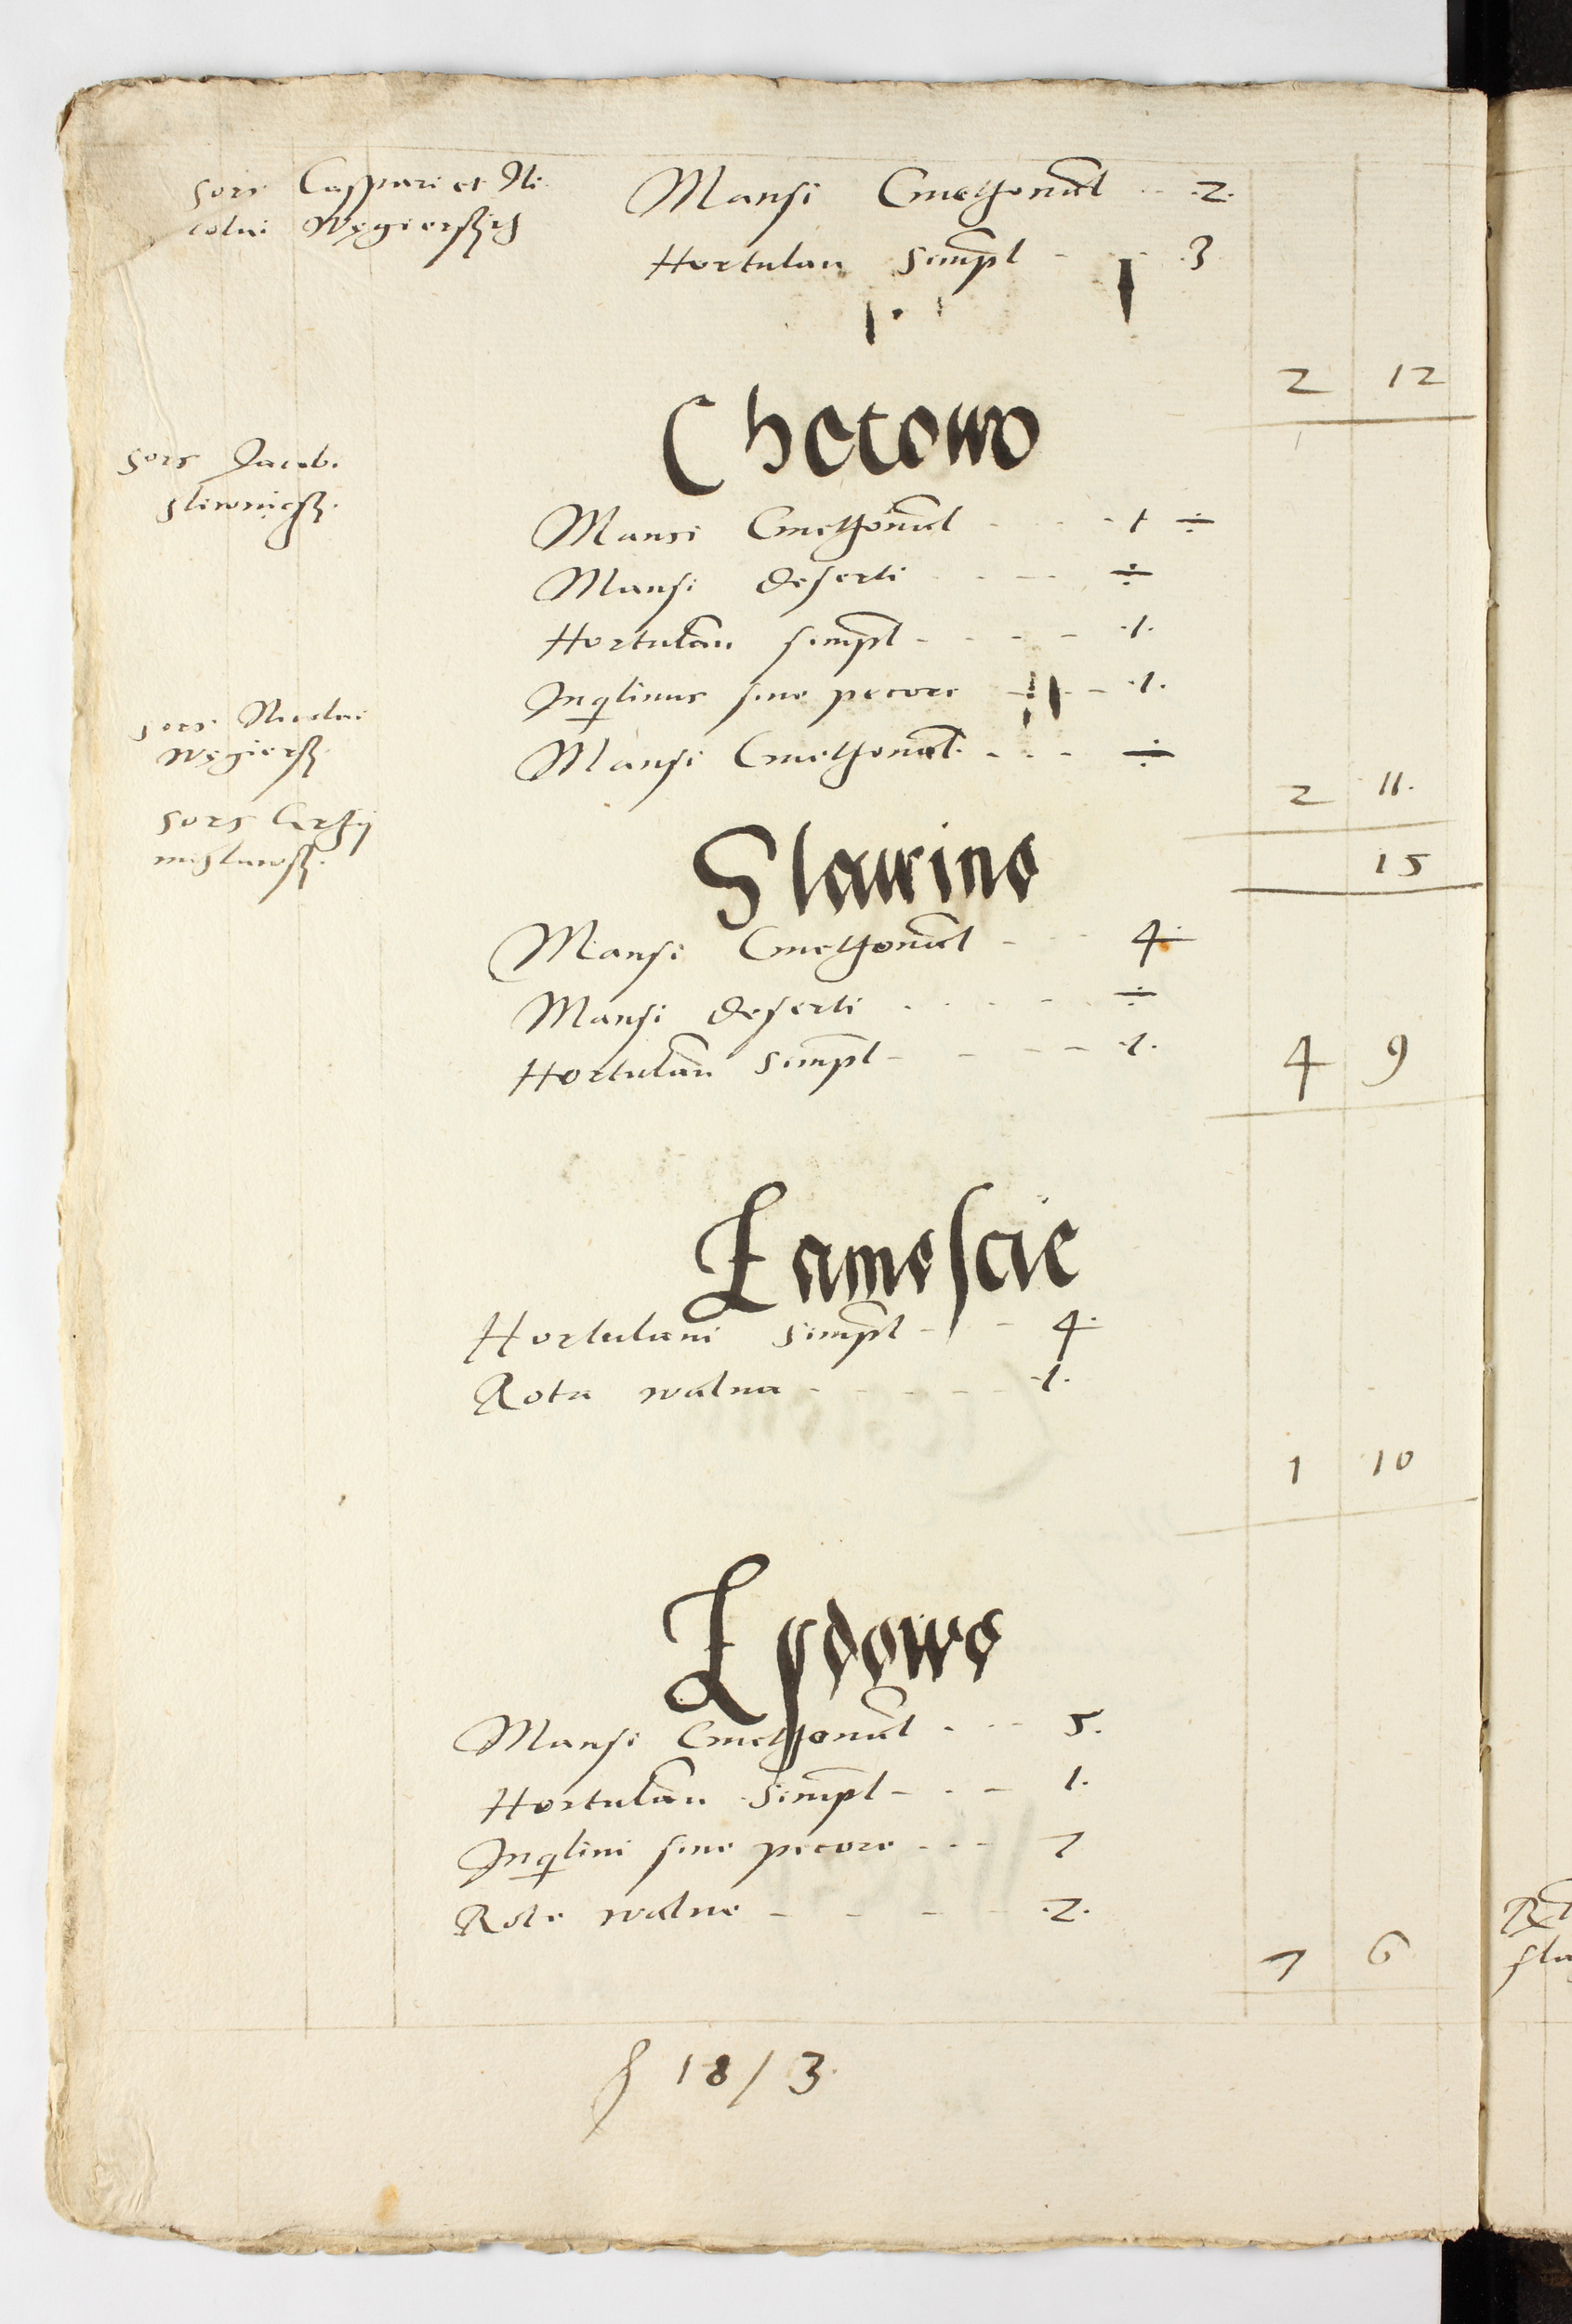 Sors Caspari et Ni
colai Węgierskich
Mansi Cmethonal 2.
Hortulan simpl 3
2 12
Chetowo
Sors Jacob.
Sliwniczk.
Mansi Cmethonal 1 ÷
Mansi deserti ÷
Hortulan simpl 1.
Inqlinus sine pecore 1.
Sors Nicolai
Węgiersk.
Mansi Cmethonal ÷
2 11.
Sors
15
Slawino
Mansi Cmethonal 4
Mansi deserti ÷
Hortulan simpl 1.
4 9
Zamoscie
Hortulani simpl 4.
Rota walna 1.
1 10
Zydowo
Mansi Cmethonal 5.
Hortulan simpl 1.
Inqlini sine pecore 7
Rote walne 2.
7 6
18/3